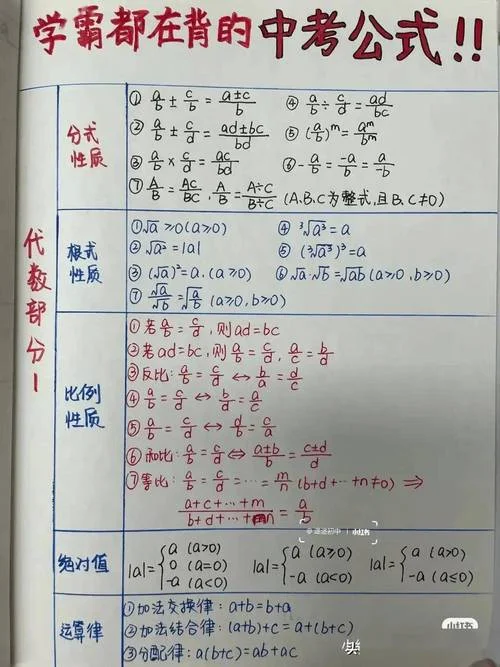 学霸都在背的中考公式!!
代数部分1
分式性质
① a/b ± c/b = a±c/b ④ a/b ÷ c/d = ad/bc
② a/b ± c/d = ad±bc/bd ⑤ (a/b)^m = a^m/b^m
③ a/b × c/d = ac/bd ⑥ -a/b = -a/b = a/-b
⑦ A/B = AC/BC, A/B = A÷C/B÷C (A.B.C为整式,且B.C≠0)
根式性质
①√a ≥0(a≥0) ④ ³√a³ = a
② √a² = |a| ⑤ (³√a)³ = a
③ (√a)² = a.(a≥0) ⑥ √a·√b = √ab (a≥0,b≥0)
⑦ √a/√b = √a/b (a≥0,b≥0)
比例性质
① 若 a/b = c/d,则 ad=bc
② 若 ad=bc,则 a/b = c/d, a/c = b/d
③ 反比: a/b = c/d ↔ b/a = d/c
④ a/b = c/d ↔ b/d = a/c
⑤ a/b = c/d ↔ d/b = c/a
⑥ 和比: a/b = c/d ⇔ a±b/b = c±d/d
⑦ 等比: a/b = c/d = … = m/n (b+d+…+n≠0) ⇒
a+c+…+m/b+d+…+n = a/b
绝对值
|a|={a (a>0) 0 (a=0) -a (a<0) |a|={a (a≥0) -a (a<0) |a|={a (a>0) -a (a≤0)
运算律
① 加法交换律: a+b=b+a
② 加法结合律: (a+b)+c = a+(b+c)
③ 分配律: a(b+c) = ab+ac
小红书
小红书